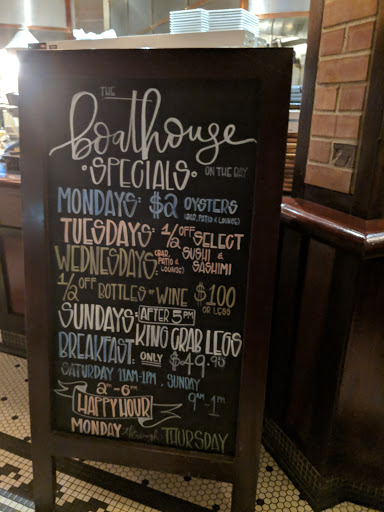 THE
boathouse
• SPECIALS • ON THE BAY
MONDAYS: $2 OYSTERS
(BAR, PATIO & LOUNGE)
TUESDAYS: 1/2 OFF SELECT
(BAR, PATIO & LOUNGE) SUSHI & SASHIMI
WEDNESDAYS:
1/2 OFF BOTTLES OF WINE $100
OR LESS
SUNDAYS: AFTER 5PM
KING CRAB LEGS
ONLY $49.95
BREAKFAST:
SATURDAY 11AM-1PM, SUNDAY
9AM-1PM
2PM-6PM
HAPPY HOUR
MONDAY through THURSDAY